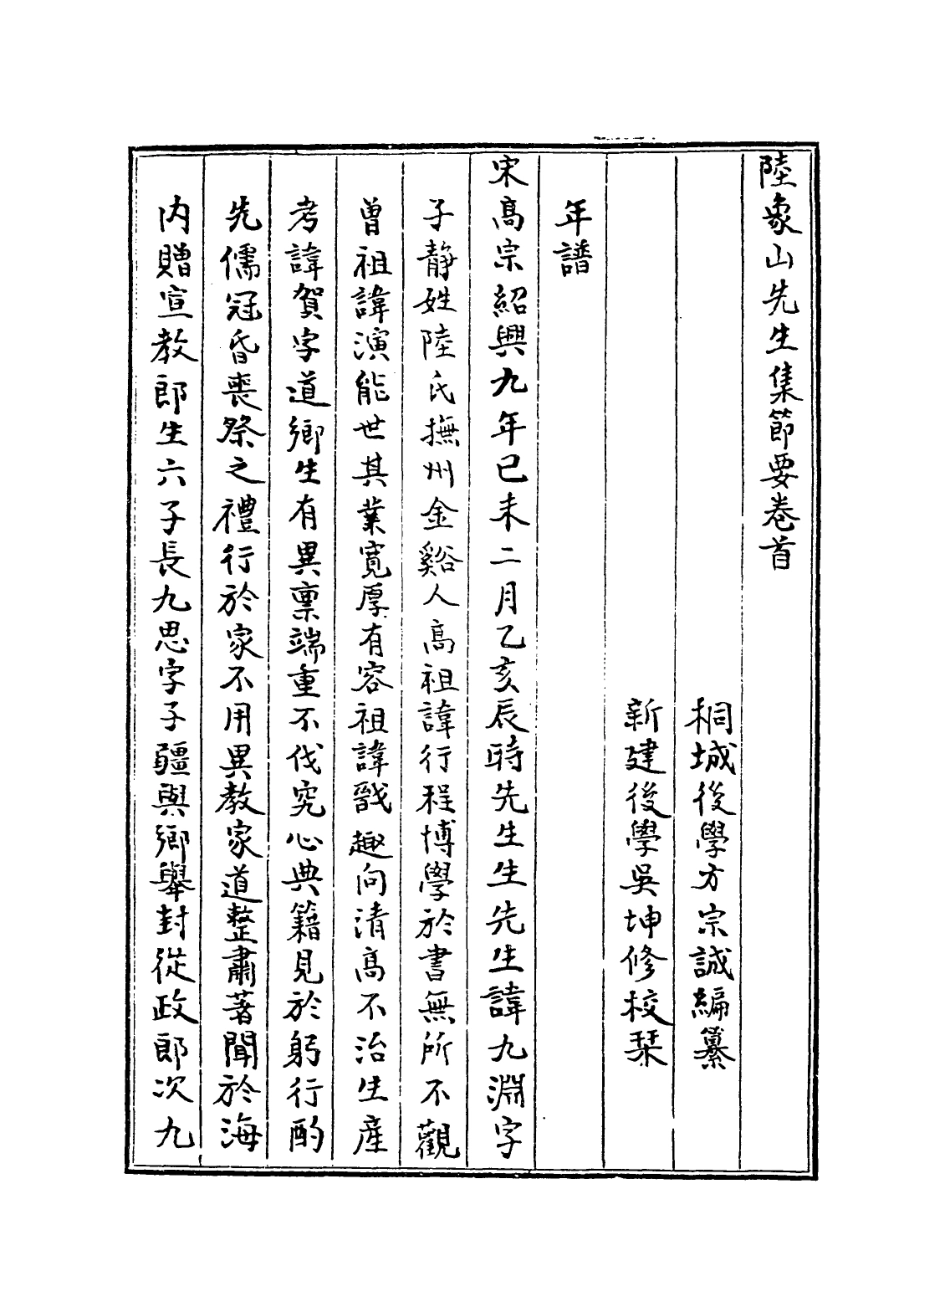 陸象山先生集節要卷首
桐城後學方宗誠編纂
新建後學吳坤修校栞
年譜
宋高宗紹興九年己未二月乙亥辰時先生生先生諱九淵字
子靜姓陸氏撫州金谿人高祖諱行程博學於書無所不觀
曾祖諱演能世其業寬厚有容祖諱戩趣向清高不治生產
考諱賀字道鄉生有異稟端重不伐究心典籍見於躬行酌
先儒冠昏喪祭之禮行於家不用異教家道整肅著聞於海
內贈宣教郎生六子長九思字子疆與鄉舉封從政郎次九